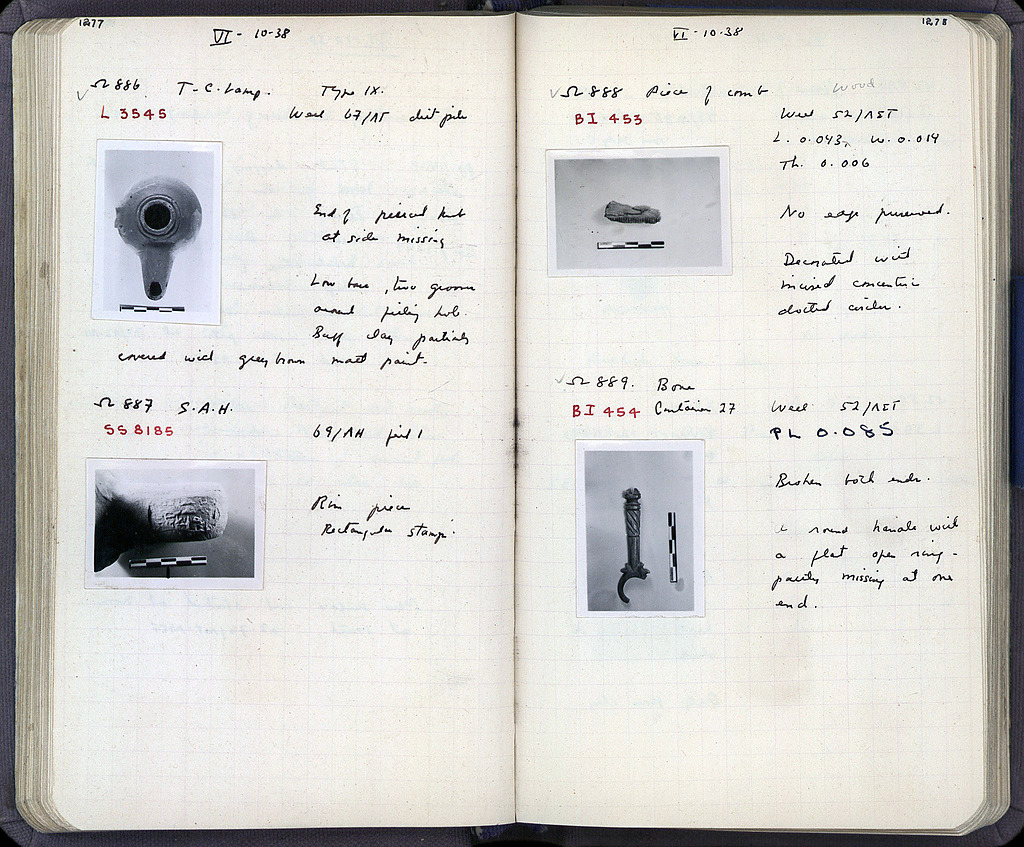 1277
VI - 10-38
Ω 886 T-C. Lamp. Type IX.
L 3545 Well 67/ dirt pile
End of pierced knob
at side missing
Low base, two grooves
around filling hole.
Buff clay partially
covered with grey brown matt paint.
Ω 887 S.A.H.
SS 8185 69/ 1
Rim piece
Rectangular stamp:
1278
VI - 10-38
Ω 888 Piece of comb Wood
BI 453 Well 52/
L. 0.043, W. 0.014
Th. 0.006
No edge preserved.
Decorated with
incised concentric
dotted circles.
Ω 889. Bone
BI 454 Container 27 Well 52/
PL 0.085
Broken both ends.
a round handle with
a flat open ring -
partly missing at one
end.